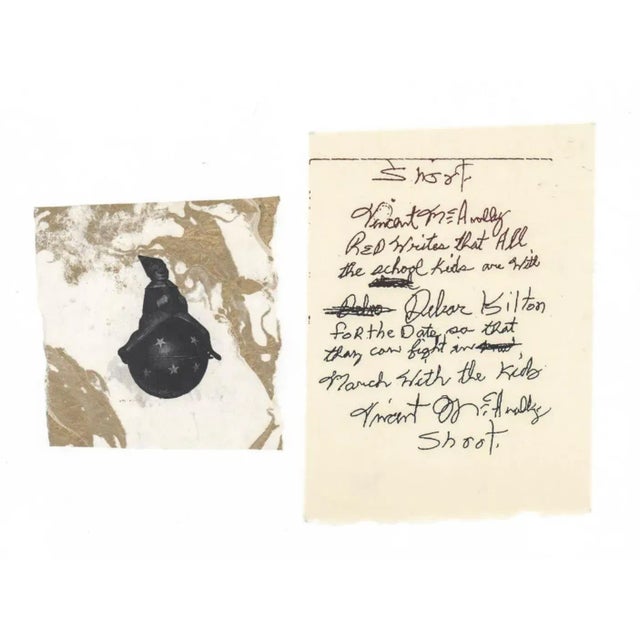 Shoot.
Vincent McAnally
RED Writes that All
the school kids are with
Debar Kilton
for the Date, so that
they can fight in
March With the Kids
Vincent McAnally
Shoot.